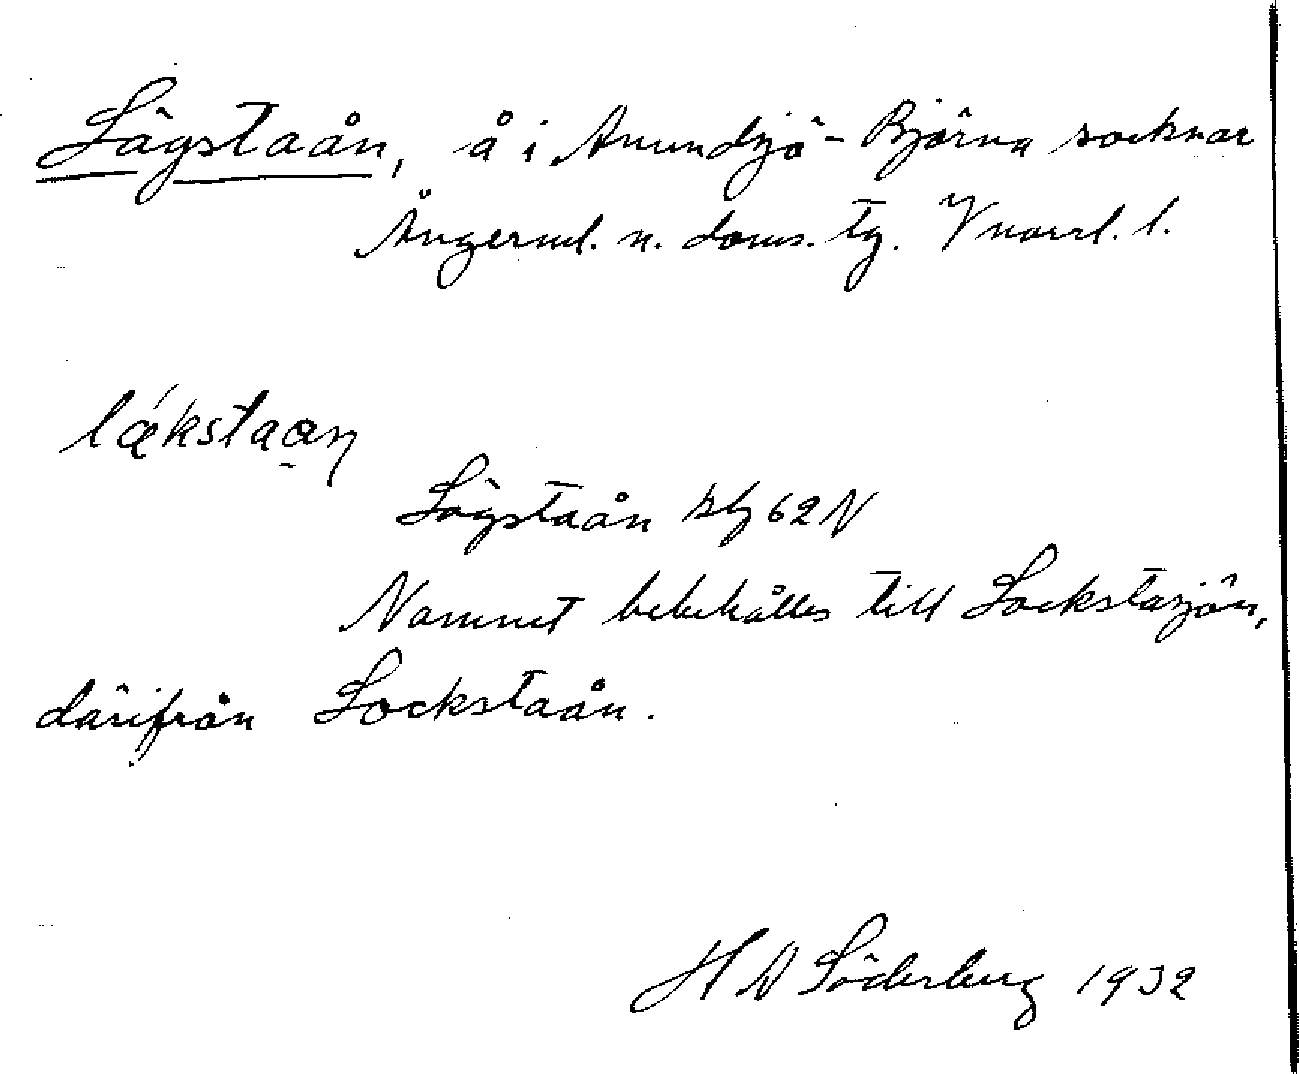 Lögstaån, å i Anundsjö - Björna socknar
Ångerml. n. doms. tg. Vnorrl. l.
Lögstaån 62 N
Namnet bibehålles till Lockstasjön,
därifrån Lockstaån.
H W Söderberg 1932